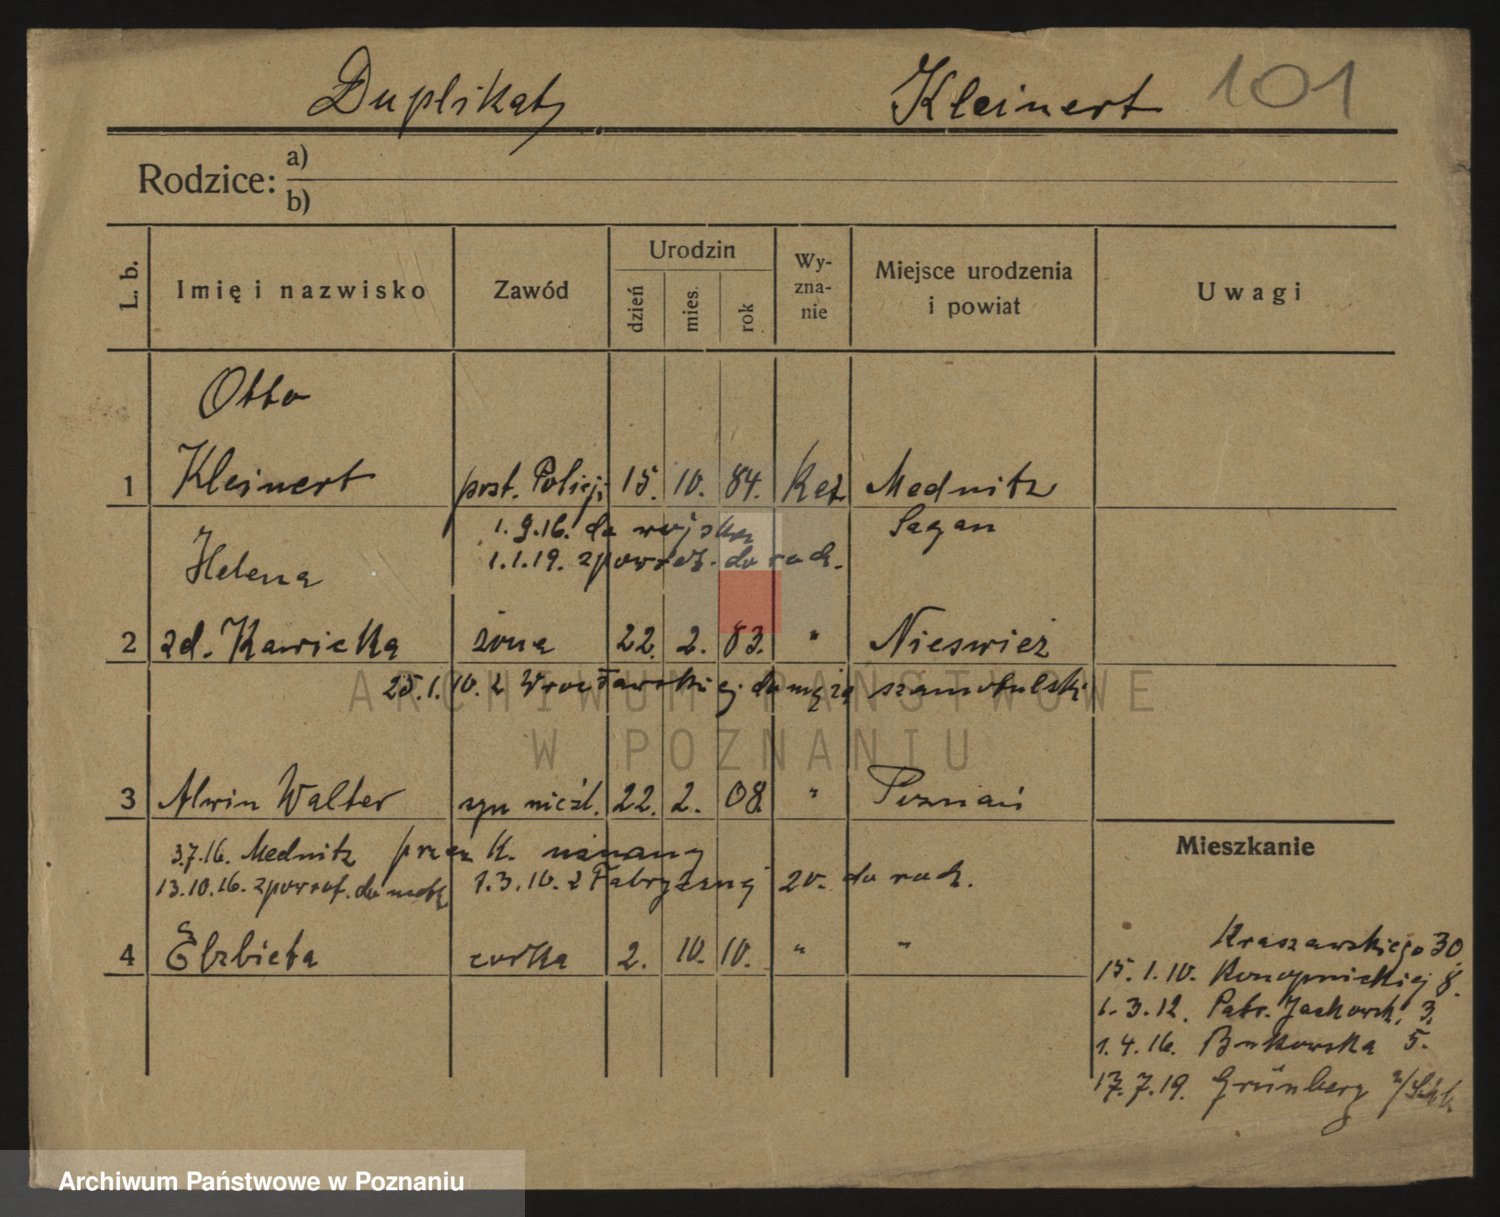 Duplikat, Kleinert 101
Rodzice: a)
b)
L. b.
Imię i nazwisko
Zawód
Urodzin
dzień
mies.
rok
Wy-
zna-
nie
Miejsce urodzenia
i powiat
Uwagi
Otto
1 Kleinert post. Policji 15. 10. 84. Kat Mednitz
1.9.16. do wojska Sagan
1.1.19. zpowrot. do rodz.
Helena
2 zd. Kawicka żona 22. 2. 83. " Nieswież
25.1.10. z Wrocławskiej do męża szamotulski
3 Alwin Walter syn nieśl. 22. 2. 08. " Poznań
3.7.16. Mednitz przez K. uznany
13.10.16. zpowrot. do matk. 1.3.10. z Fabrycznej 20. do rodz.
4 Elzbieta corka 2. 10. 10. " "
Mieszkanie
Kraszawskiego 30.
15.1.10. Konopnickiej 8.
1.3.12. Patr. Jackowsk. 3.
1.4.16. Bukowska 5.
17.7.19. Grünberg
ARCHIWUM PAŃSTWOWE
W POZNANIU
Archiwum Państwowe w Poznaniu